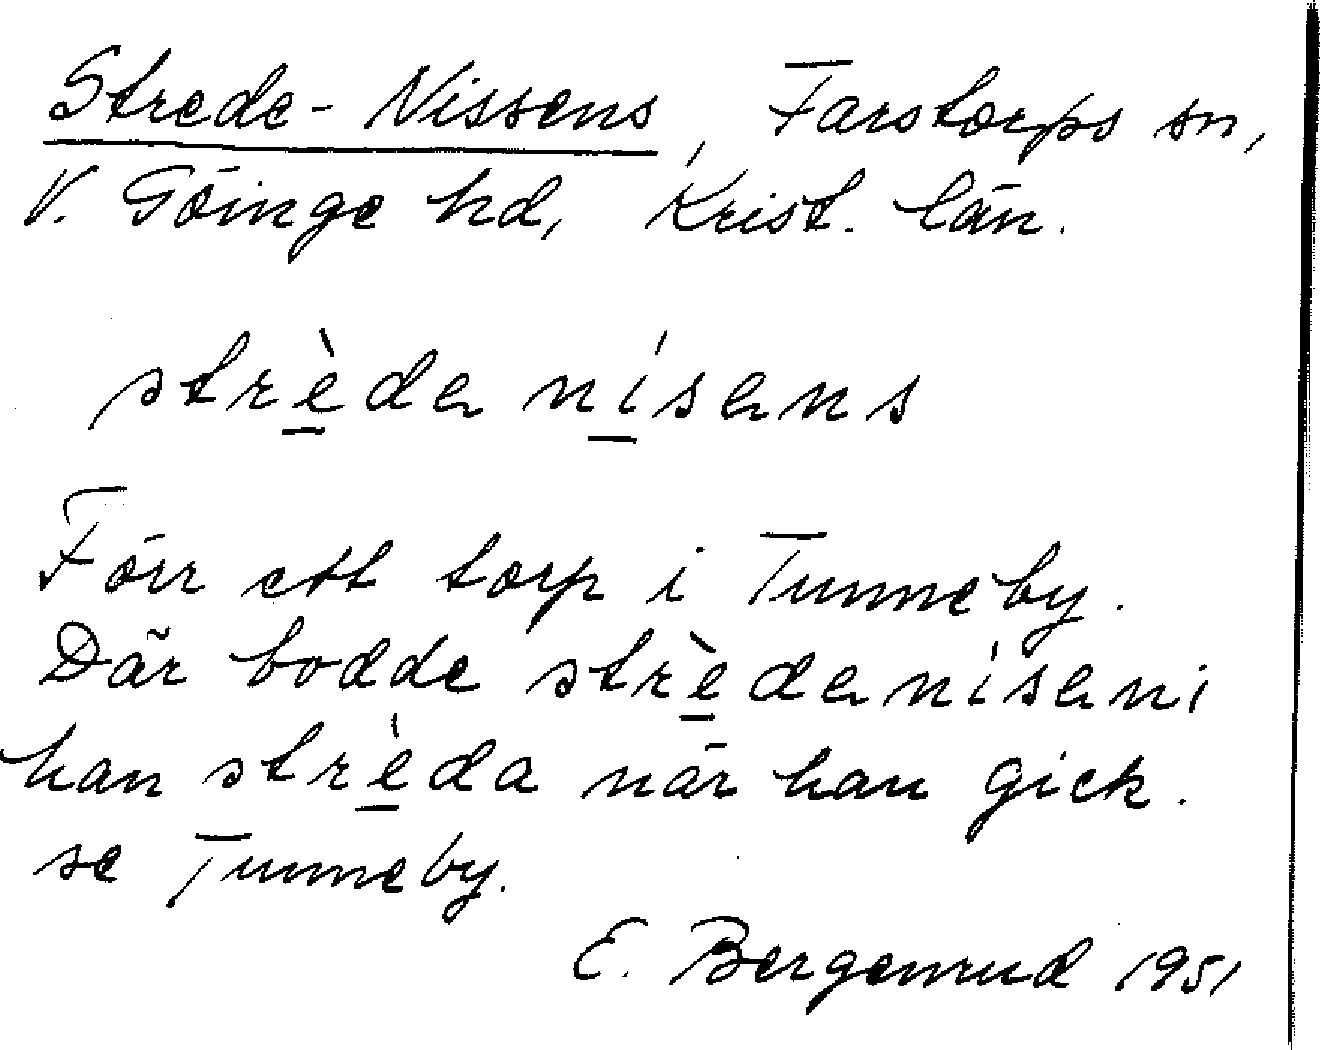 Strede-Nissens, Farstorps sn,
V. Göinge hd, Krist. län.
strèdɘ nísɘns
Förr ett torp i Tunneby.
Där bodde strèdɘnísɘn;
han strèda när han gick.
se Tunneby.
E. Bergemrud 1951